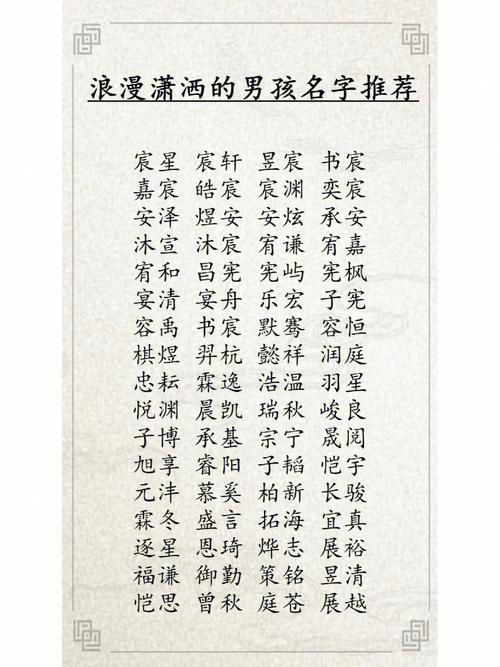 浪漫潇洒的男孩名字推荐
宸星 宸轩 昱宸 书宸
嘉宸 皓宸 宸渊 奕宸
安泽 煜安 安炫 承安
沐宣 沐宸 宥谦 宥嘉
宥和 昌宪 宪屿 宪枫
宴清 宴舟 乐宏 子宪
容禹 书宸 默骞 容恒
棋煜 羿杭 懿祥 润庭
忠耘 霖逸 浩温 羽星
悦渊 晨凯 瑞秋 峻良
子博 承基 宗宁 晟阅
旭享 睿阳 子韬 恺宇
元沣 慕奚 柏新 长骏
霖冬 盛言 拓海 宜真
逐星 恩琦 烨志 展裕
福谦 御勤 策铭 昱清
恺思 曾秋 庭苍 展越